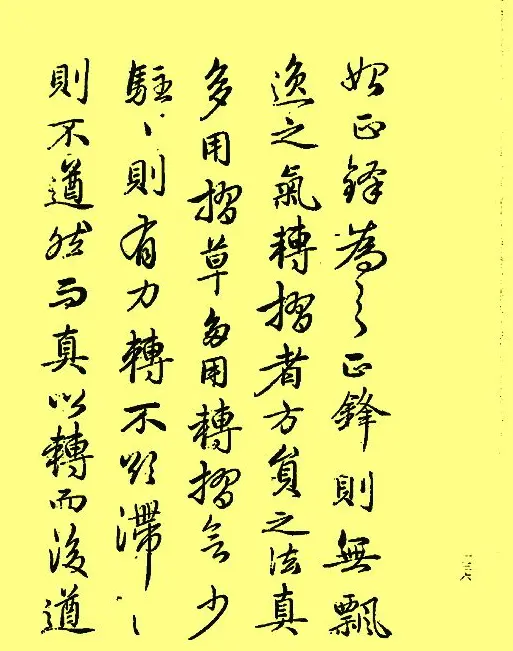 正鋒為之正鋒則無飄
逸之氣轉摺者方員之法真
多用摺草多用轉摺欲少
駐〻則有力轉不欲滯〻
則不遒然而真以轉而後遒